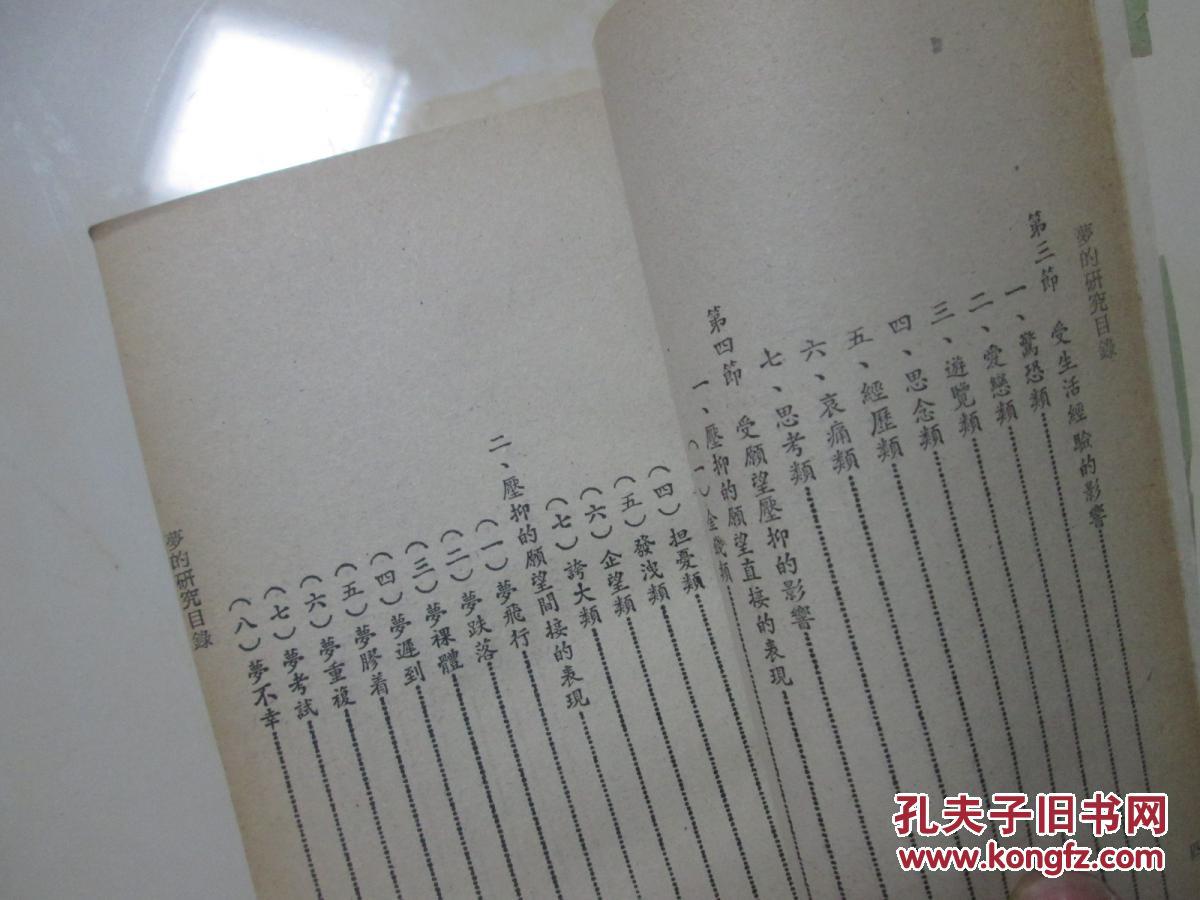 夢的研究目錄
第三節 受生活經驗的影響
一、驚恐類
二、愛戀類
三、遊覽類
四、思念類
五、經歷類
六、哀痛類
七、思考類
第四節 受願望壓抑的影響
一、壓抑的願望直接的表現
(一)金錢類
(四)担憂類
(五)發洩類
(六)企望類
(七)誇大類
二、壓抑的願望間接的表現
(一)夢飛行
(二)夢跌落
(三)夢裸體
(四)夢遲到
(五)夢膠着
(六)夢重複
(七)夢考試
(八)夢不幸
夢的研究目錄
孔夫子旧书网
www.kongfz.com